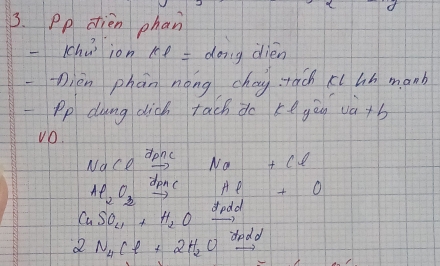 3. Pp điện phân
- Khử ion Kl = dòng điện
- Điện phân nóng chảy: tách Kl hh mạnh
- Pp dung dịch tách đc Kl yếu và tb
VD.
NaCl đpnc → Na + Cl
Al₂O₃ đpnc → Al + O
CuSO₄ + H₂O đpdd →
2 N₄Cl + 2H₂O đpdd →